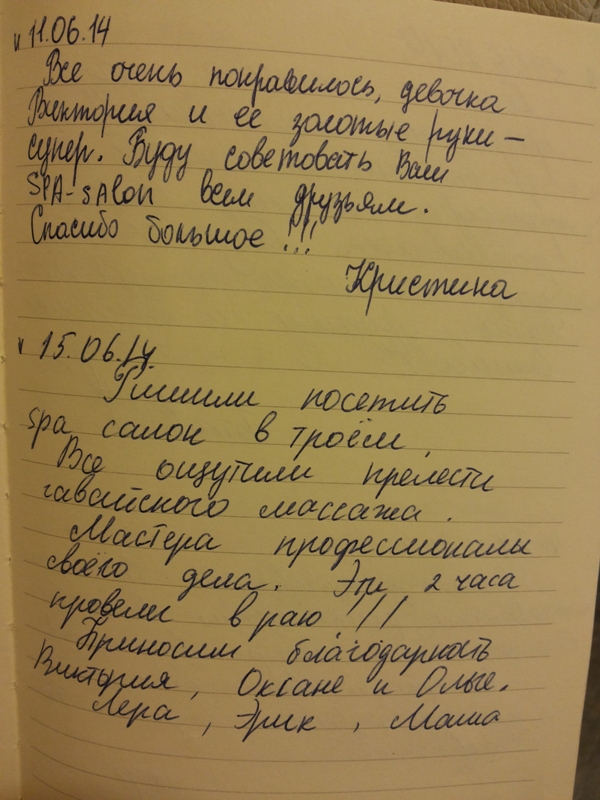 11.06.14
Все очень понравилось, девочка
Виктория и ее золотые руки –
супер. Буду советовать Ваш
SPA-sAlon всем друзьям.
Спасибо большое !!!
Кристина
15.06.14.
Решили посетить
spa салон в троём.
Все ощутили прелести
гавайского массажа.
Мастера профессионалы
своего дела. Эти 2 часа
провели в раю !!!
Приносим благодарность
Виктория, Оксане и Ольге.
Лера, Эрик, Маша